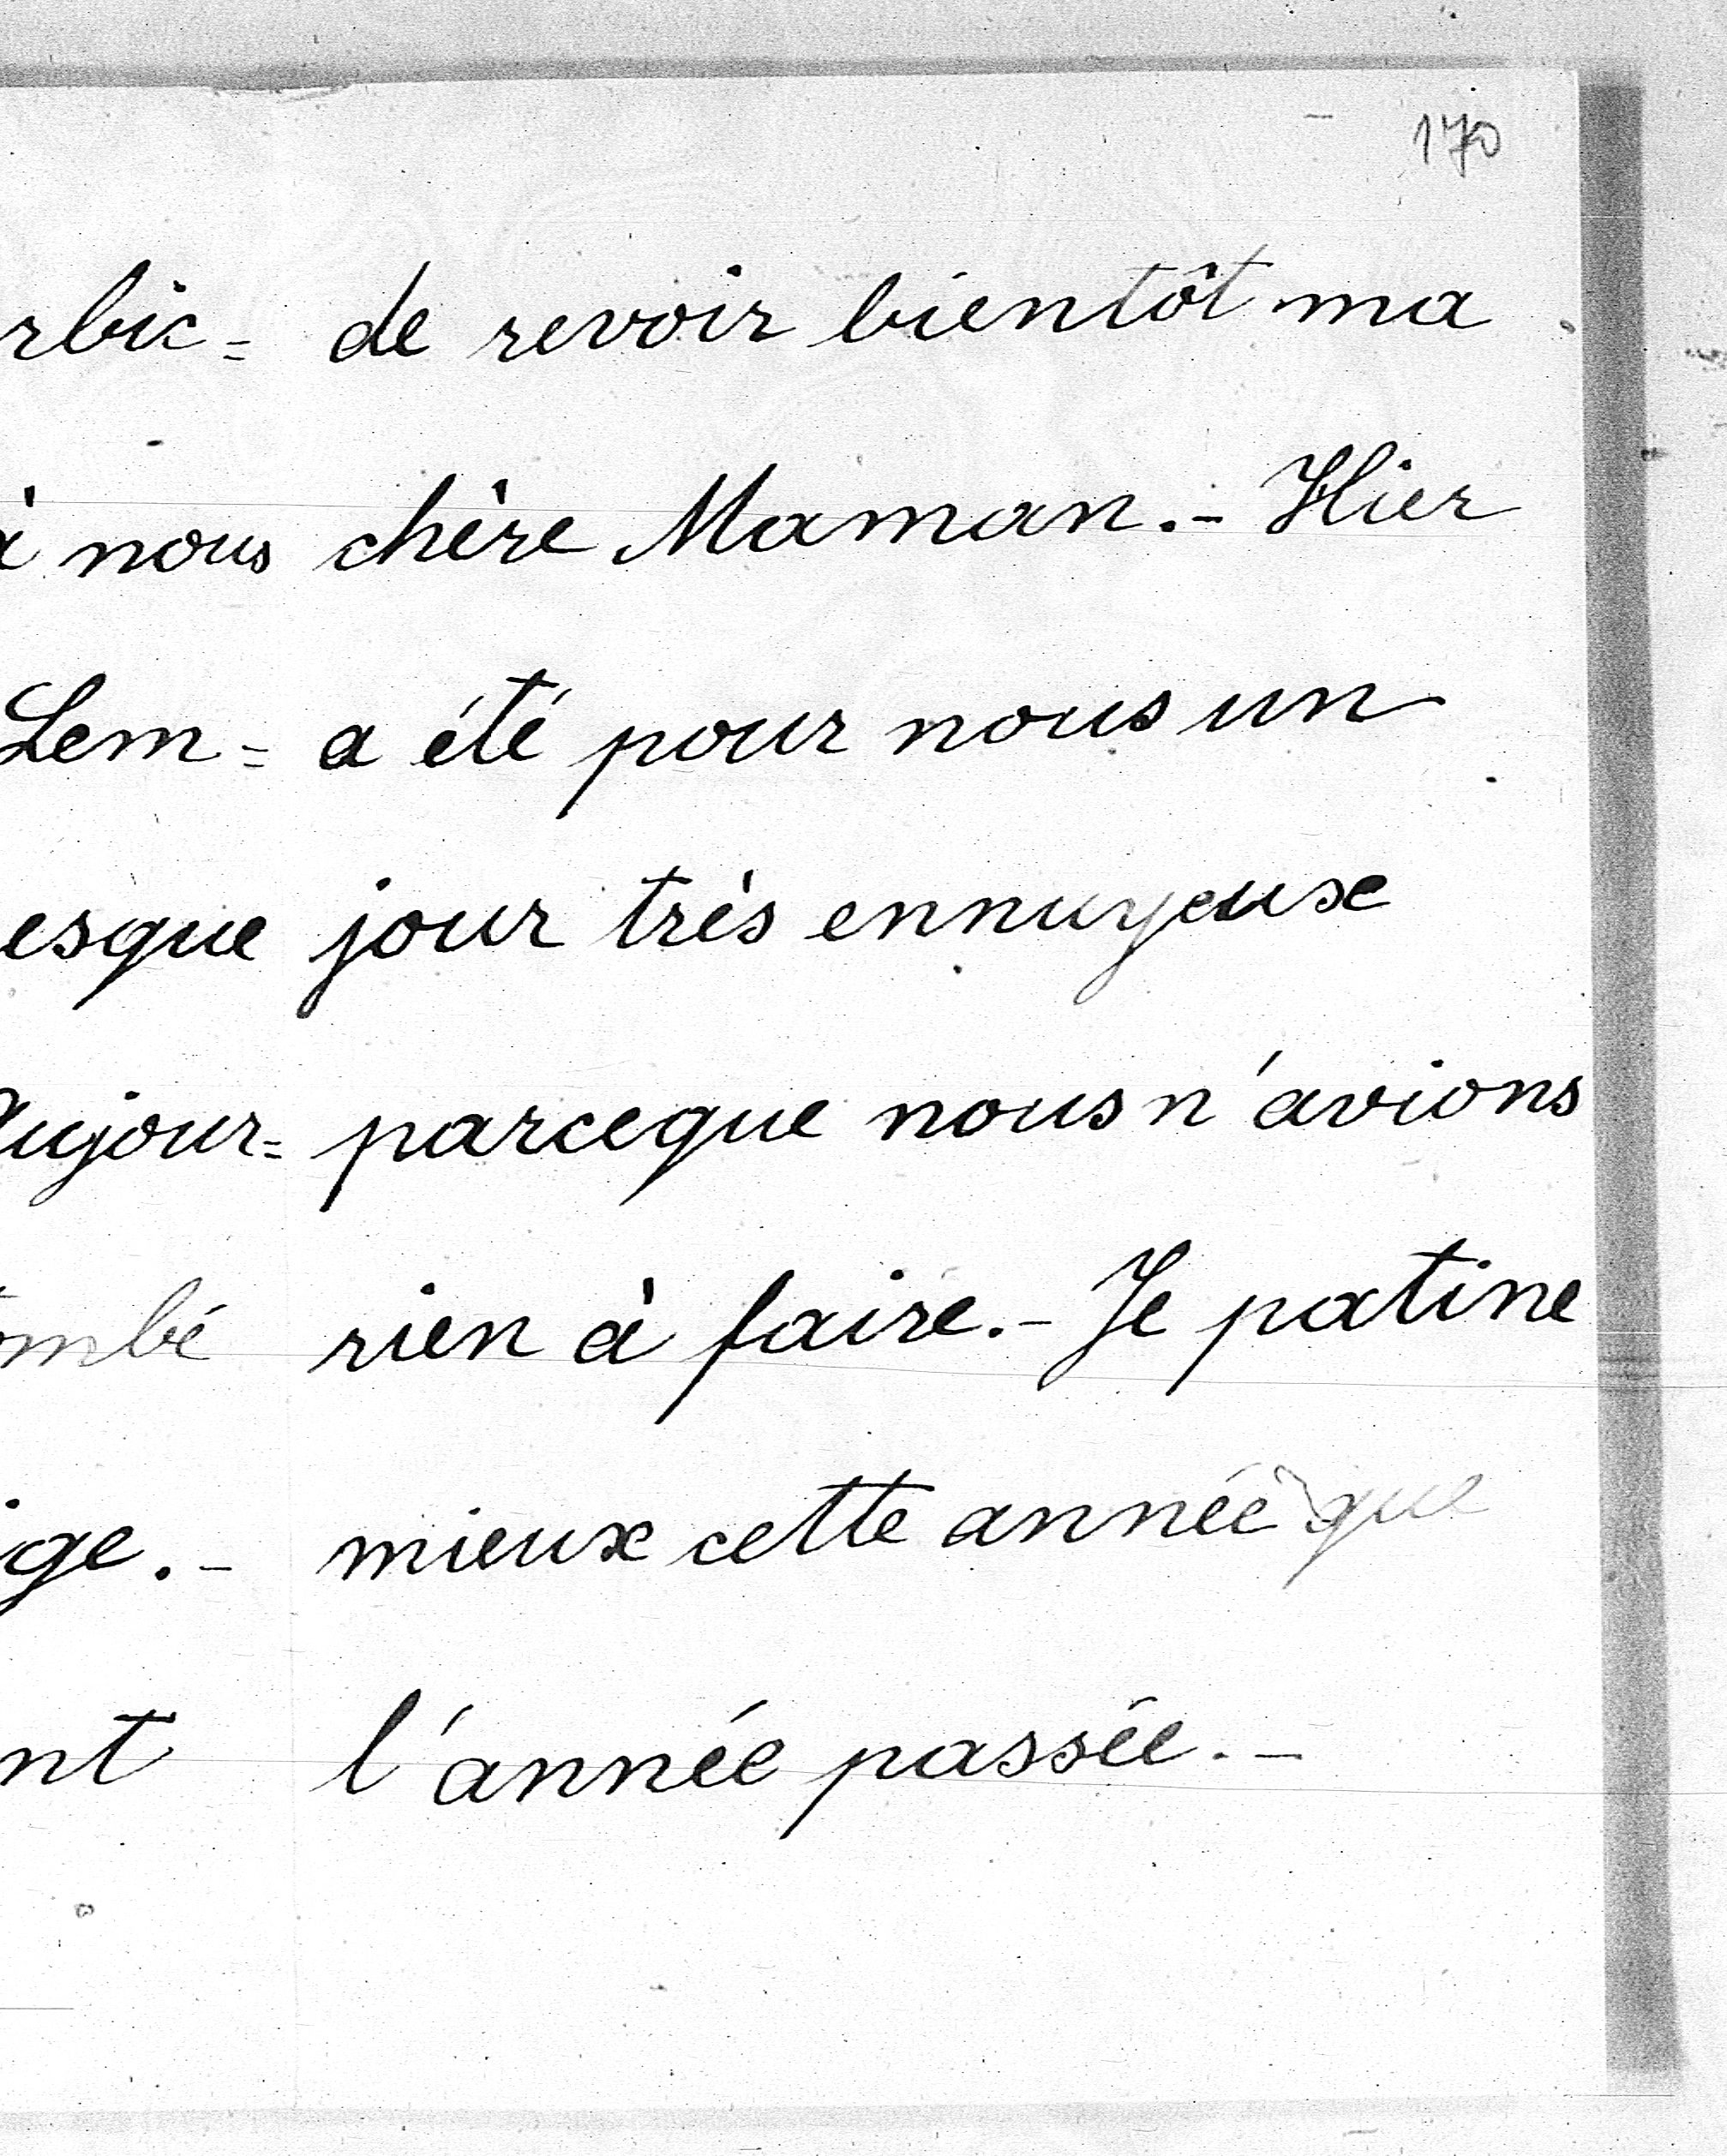 170
rbic=
à nous
Lem=
esque
Aujour=
ombé
ige.-
nt
de revoir bientôt ma
chère Maman.- Hier
a été pour nous un
jour très ennuyeuse
parceque nous n'avions
rien à faire.- Je patine
mieux cette année que
l'année passée.-